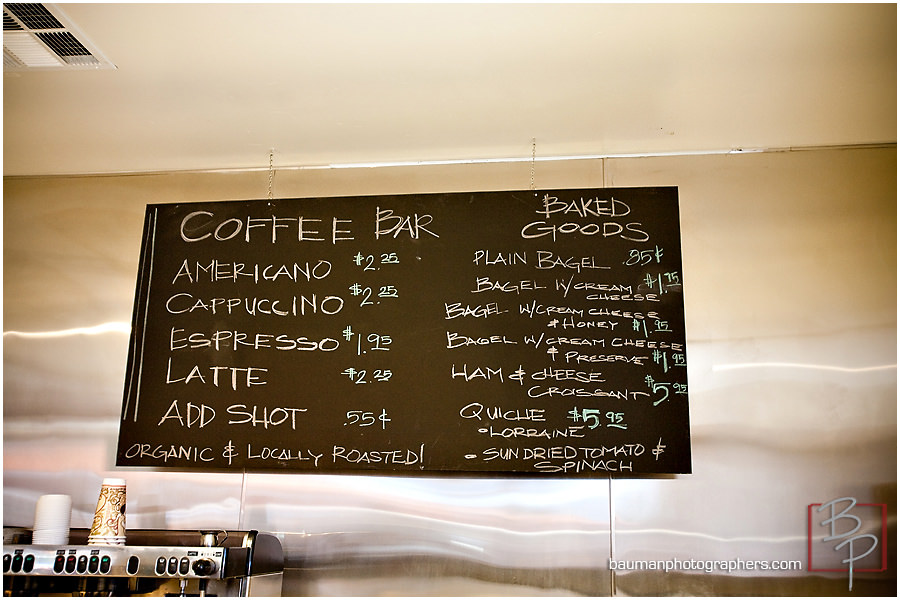 COFFEE BAR
AMERICANO $2.25
CAPPUCCINO $2.25
ESPRESSO $1.95
LATTE $2.25
ADD SHOT .55¢
ORGANIC & LOCALLY ROASTED!
BAKED
GOODS
PLAIN BAGEL .85¢
BAGEL W/CREAM $1.75
CHEESE
BAGEL W/CREAM CHEESE
& HONEY $1.95
BAGEL W/CREAM CHEESE
& PRESERVE $1.95
HAM & CHEESE
CROISSANT $5.95
QUICHE $5.95
• LORRAINE
• SUNDRIED TOMATO &
SPINACH
BP
baumanphotographers.com